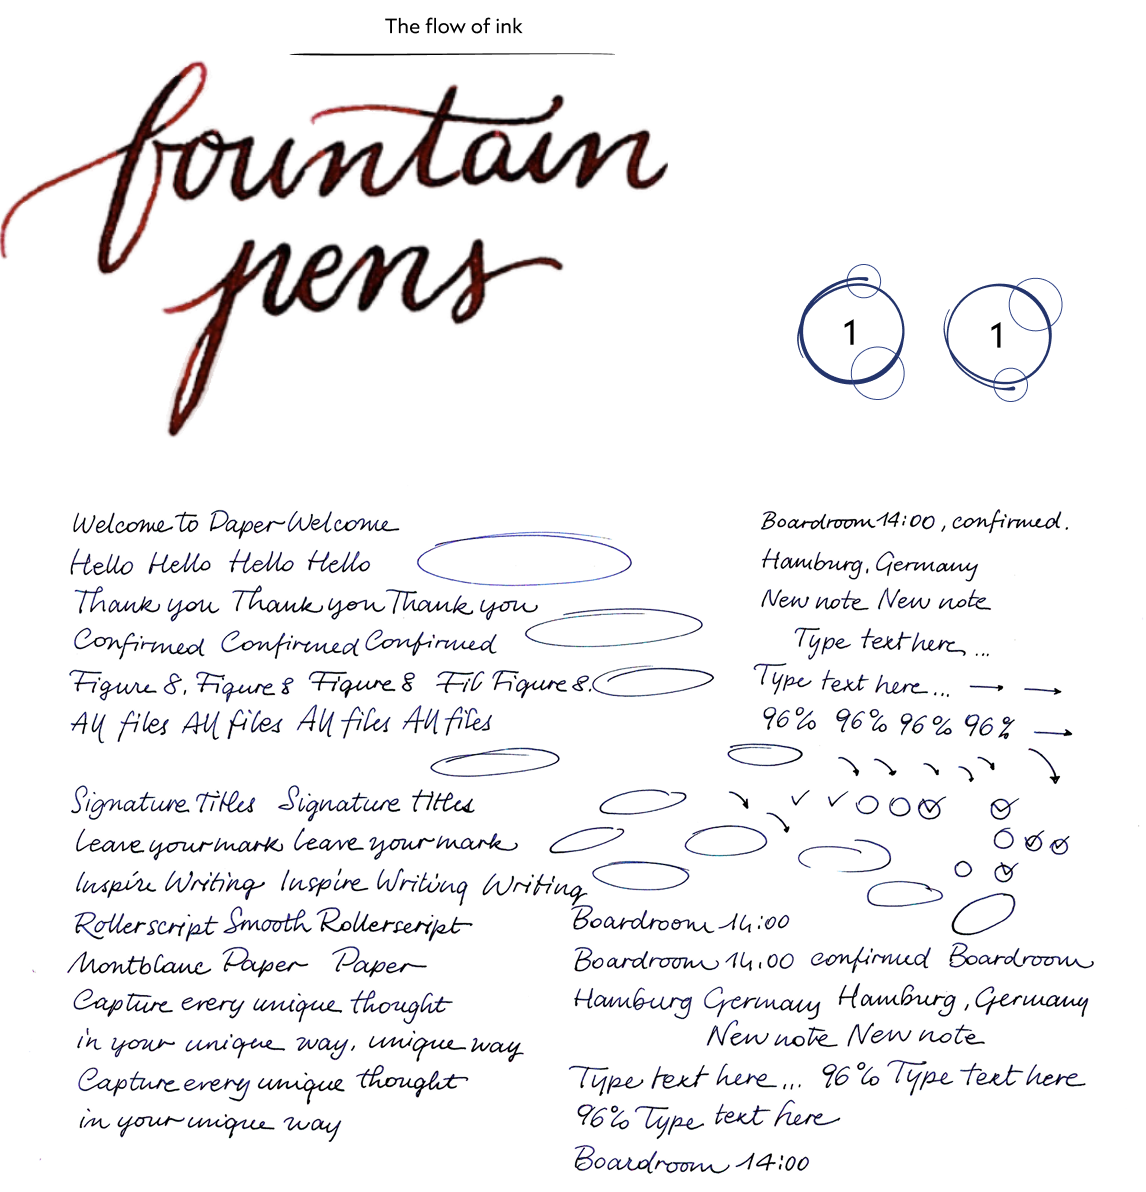 The flow of ink
fountain
pens
1 1
Welcome to Daper Welcome
Hello Hello Hello Hello
Thank you Thank you Thank you
Confirmed Confirmed Confirmed
Figure 8. Figure 8 Figure 8 Fil Figure 8.
All files All files All files All files
Signature Titles Signature titles
Leave your mark Leave your mark
Inspire Writing Inspire Writing Writing
Rollerscript Smooth Rollerscript
Montblanc Paper Paper
Capture every unique thought
in your unique way, unique way
Capture every unique thought
in your unique way
Boardroom 14:00, confirmed.
Hamburg, Germany
New note New note
Type text here, ...
Type text here ... → →
96% 96% 96% 96% →
Boardroom 14:00
Boardroom 14.00 confirmed Boardroom
Hamburg Germany Hamburg, Germany
New note New note
Type text here ... 96% Type text here
96% Type text here
Boardroom 14:00